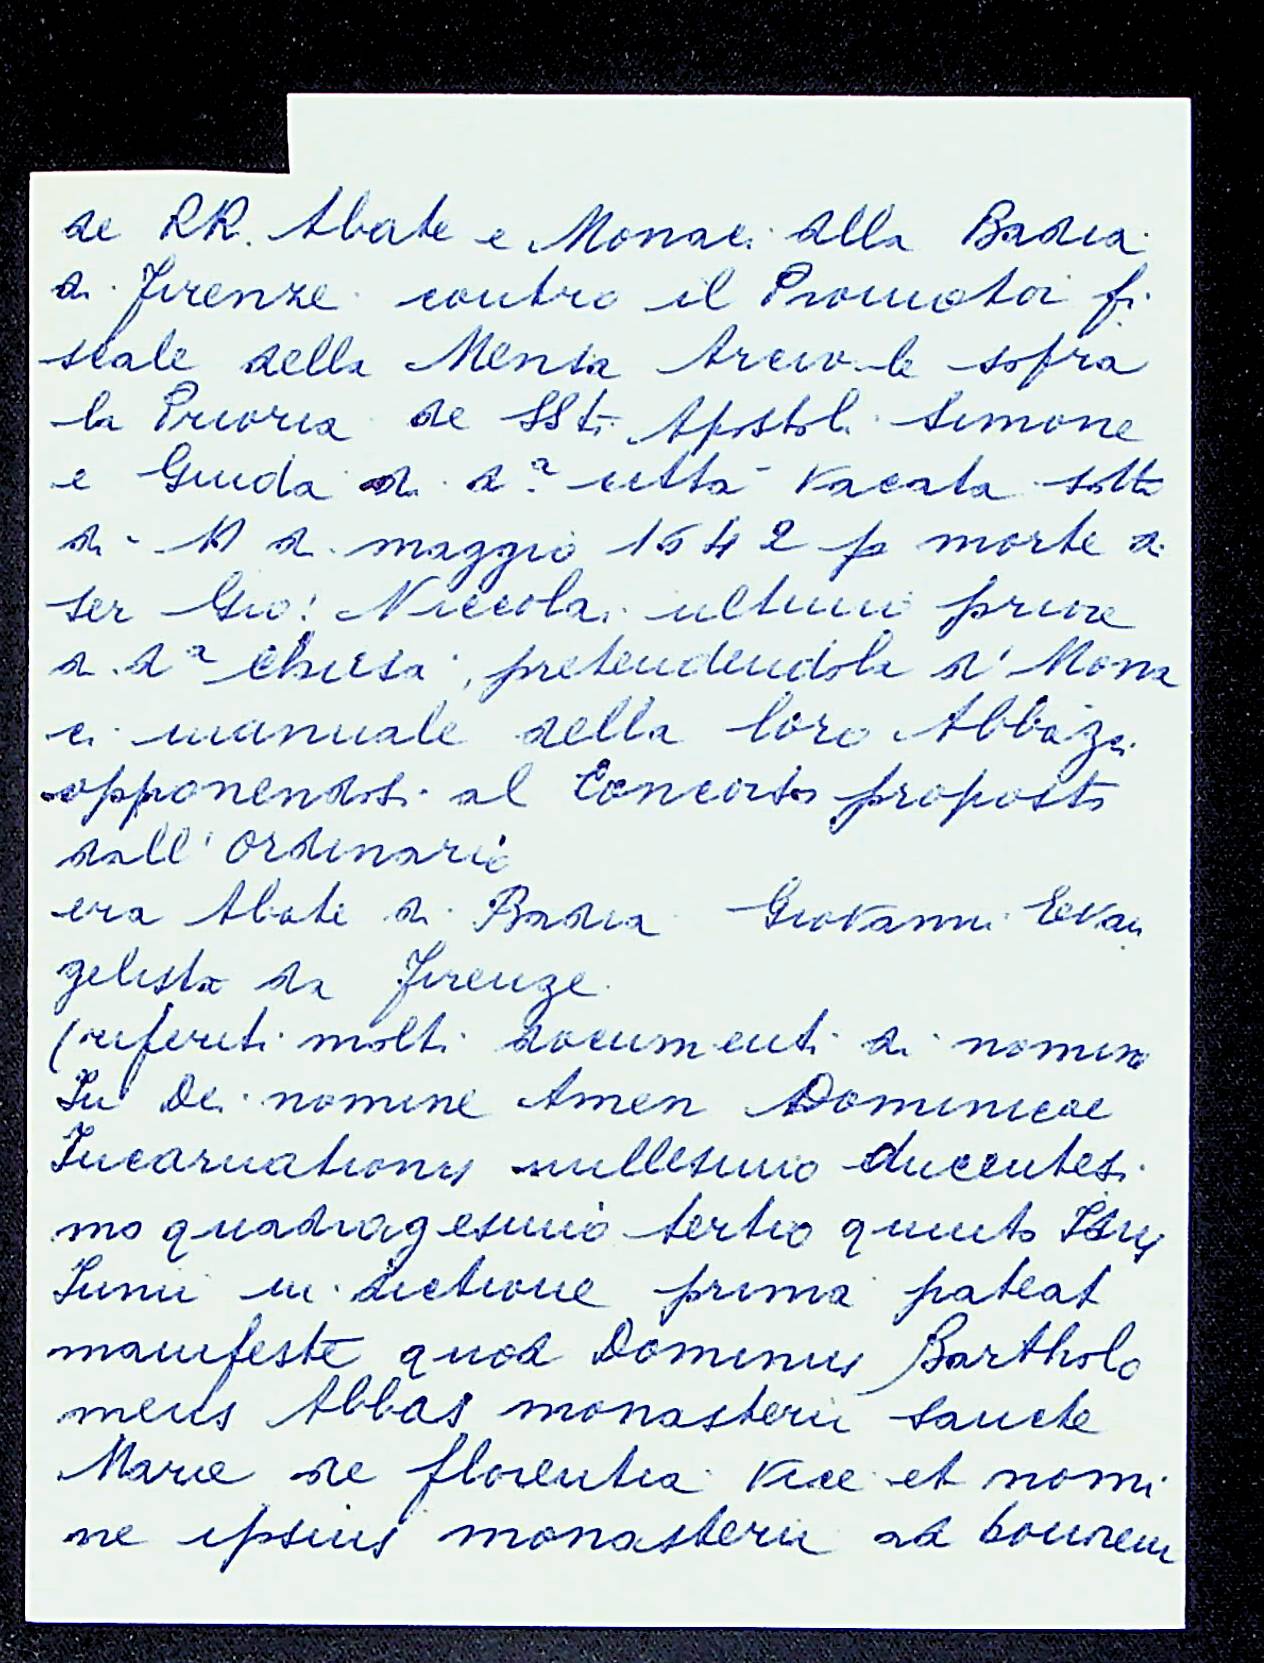 de RR. Abate e Monaci della Badia
di Firenze contro il Promotor fi
scale della Mensa Arciv-le sopra
la Prioria de SSti Apostoli Simone
e Giuda di d.a città vacata sotto
di - di maggio 1642 p morte di
ser Gio: Niccolai ultimo priore
di d.a Chiesa, pretendendola d' Mona
ci manuale della loro Abbazi
opponendosi al Concorso proposto
dall' Ordinario
era Abate di Badia Giovanni Evan
gelista da Firenze
(riferiti molti documenti di nomina
In Dei nomine Amen Dominicae
Incarnationis millesimo ducentesi
mo quadragesimo tertio quinto Idus
Iunii in dictione prima pateat
manifeste quod Dominus Bartholo
meus Abbas monasterii Sancte
Marie de florentia vice et nomi
ne ipsius monasterii ad honorem